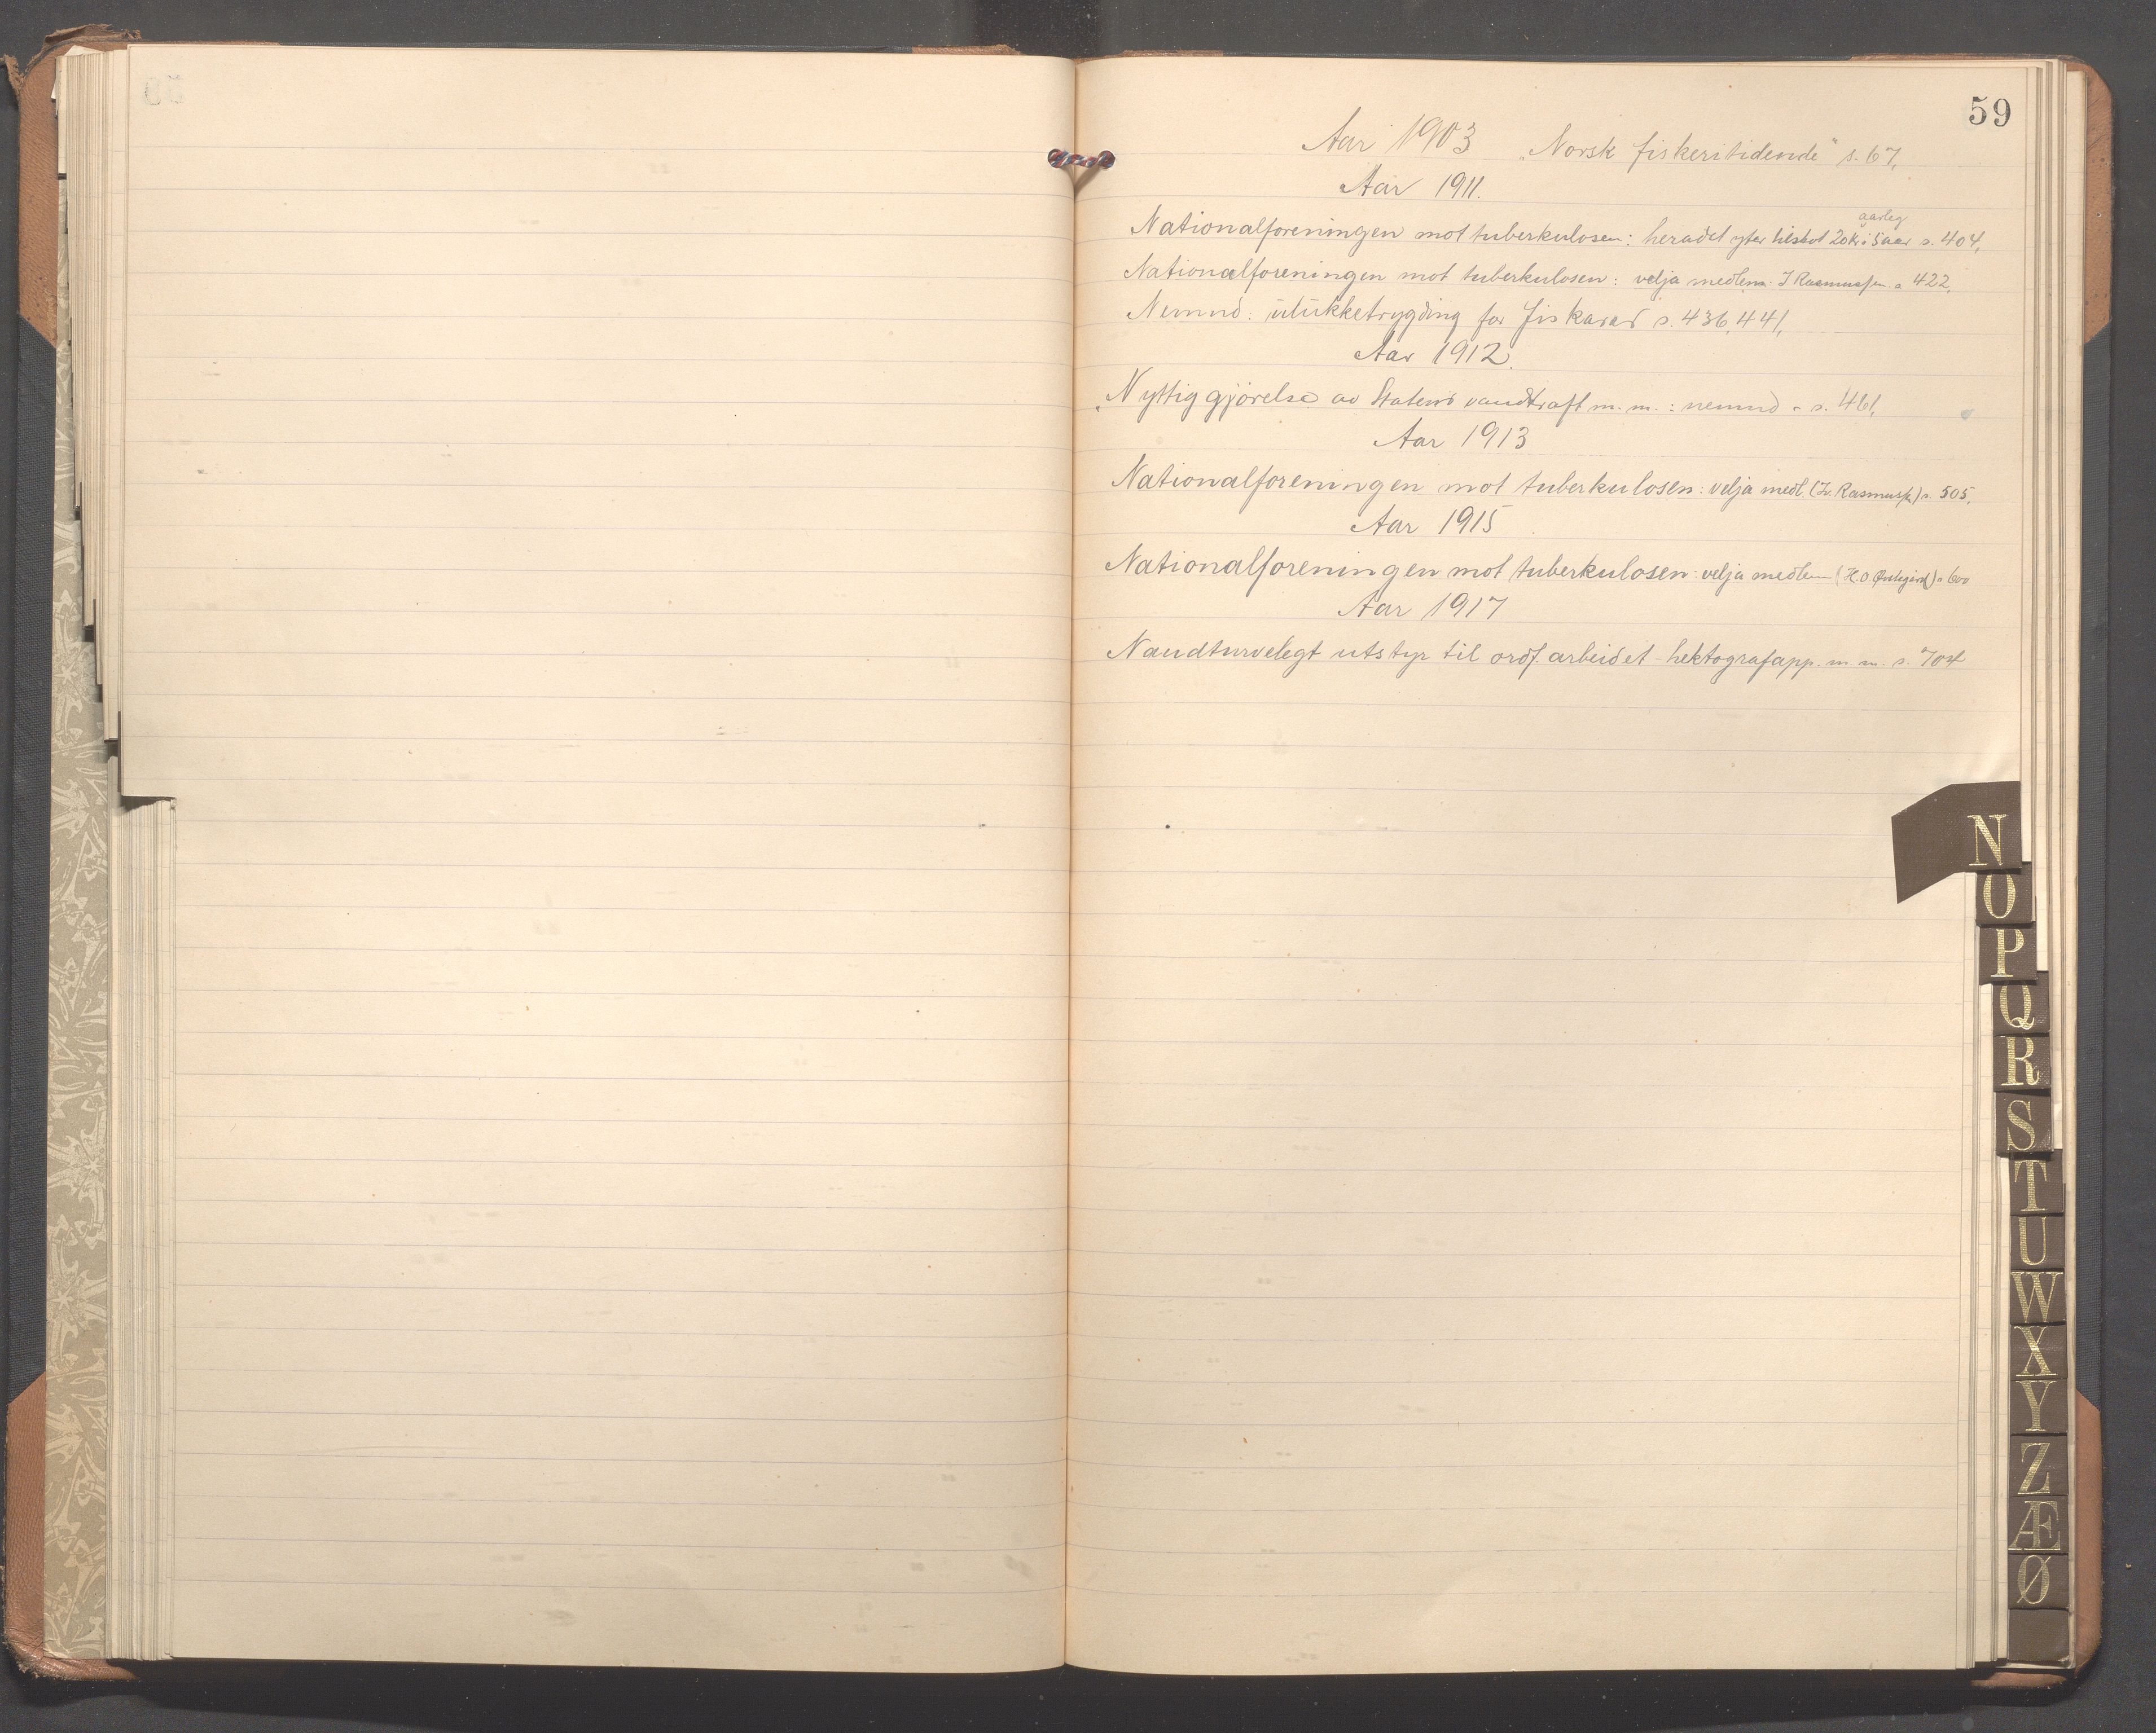 59
Aar 1903 "Norsk fiskeritidende" s. 67,
Aar 1911.
aarleg
Nationalforeningen mot tuberkulosen: heradet yter tilskot 20 kr i 5 aar s. 404,
Nationalforeningen mot tuberkulosen: velja medlem J Rasmussen s 422,
Nemnd: ulukketrygding for fiskarar s. 436, 441,
Aar 1912.
Nyttiggjørelse av Statens vandkraft m. m.: nemnd - s. 461,
Aar 1913
Nationalforeningen mot tuberkulosen: velja medl. Rasmuss.) s. 505,
Aar 1915
Nationalforeningen mot tuberkulosen velja medlem (H. O. s 600
Aar 1917
Naudturvelegt utstyr til ordf. arbeidet - hektografapp. m m. s. 704
N
O
P
Q
R
S
T
U
W
X
Y
Z
Æ
Ø